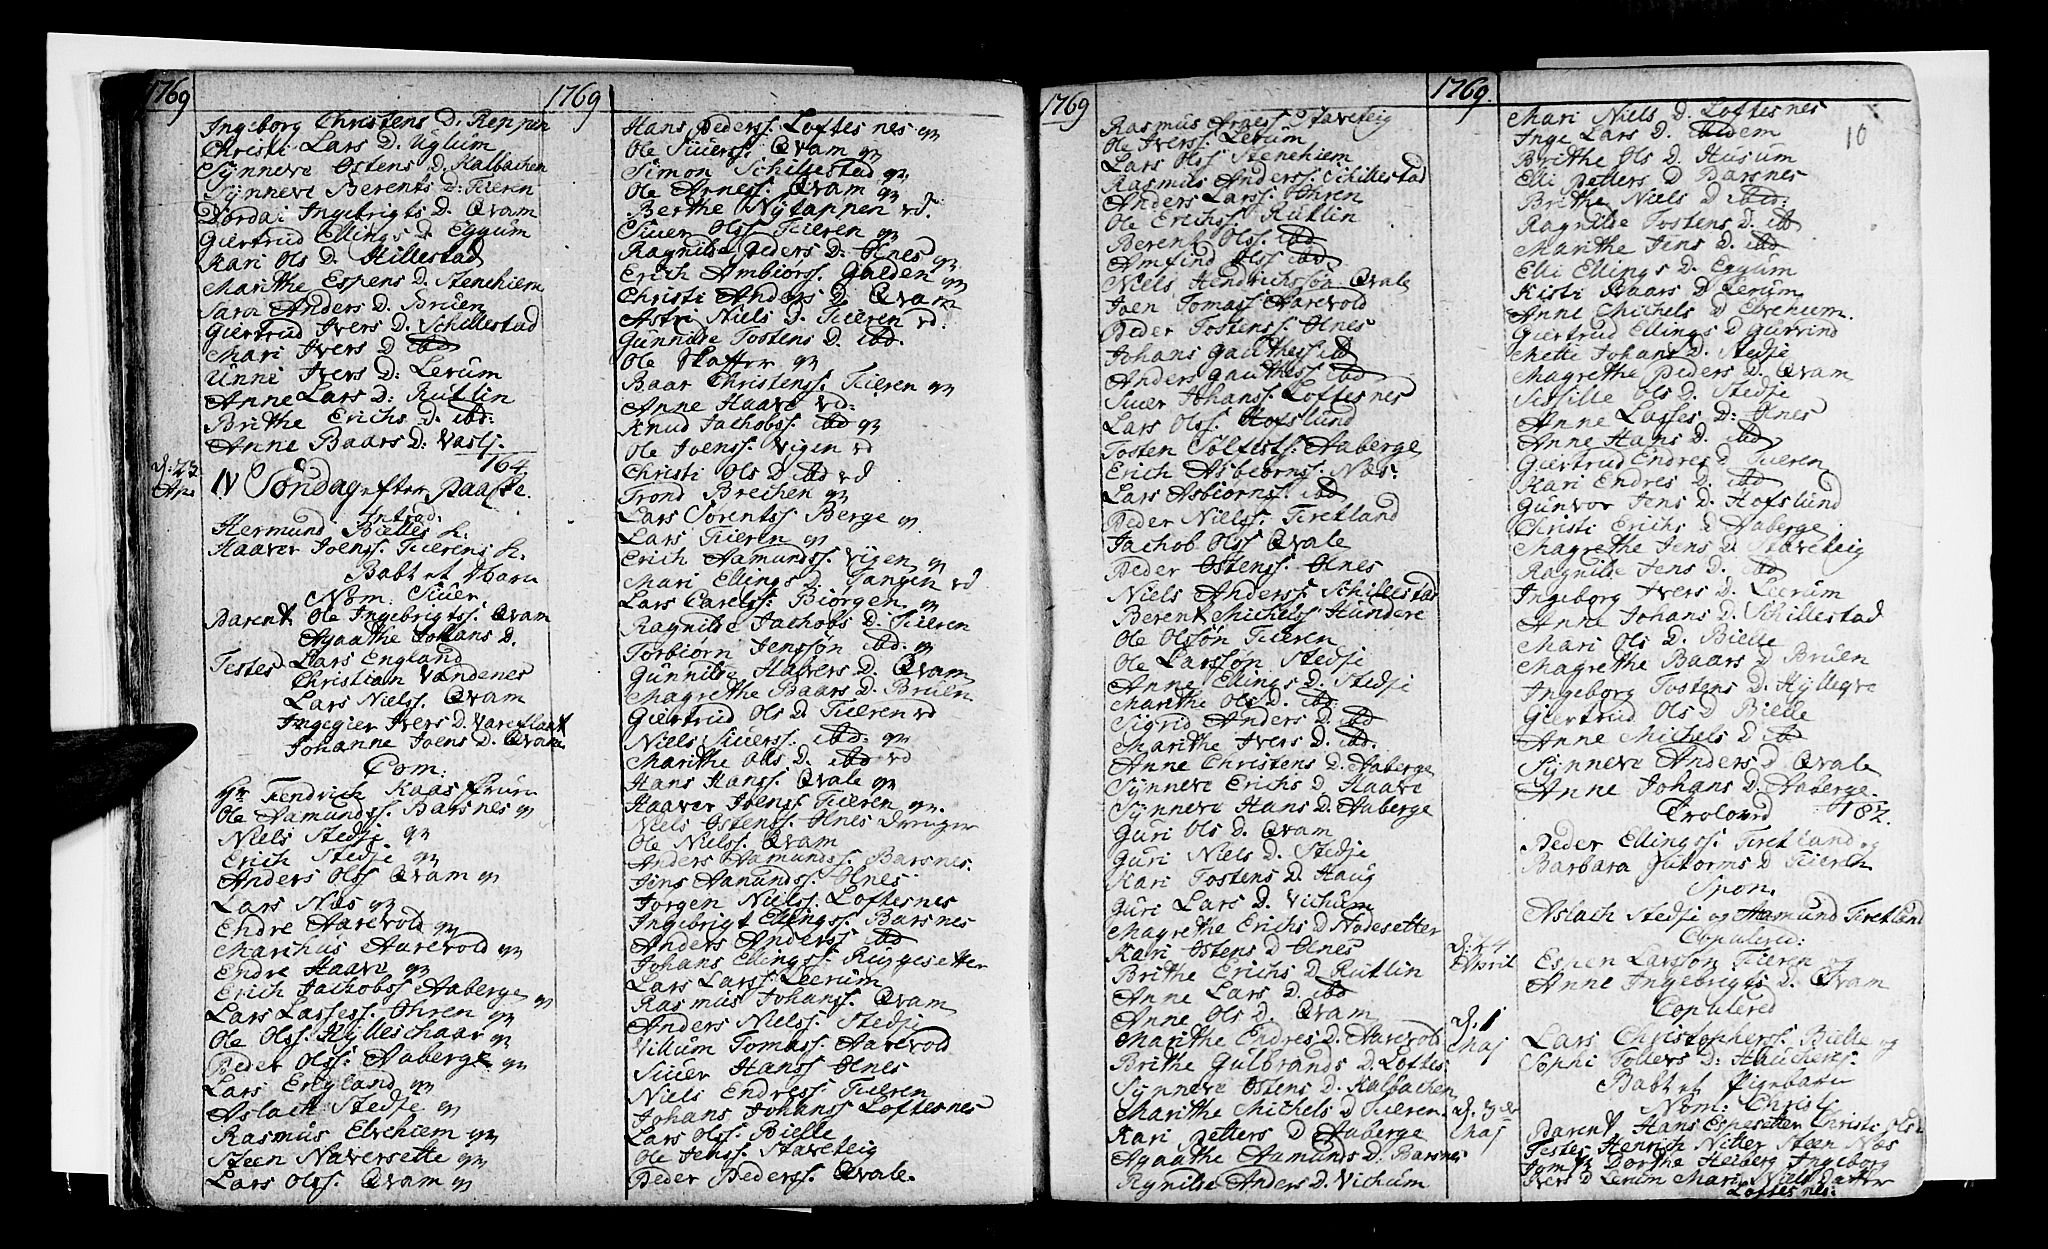 1769
Ingeborg Christens D. Reppen
Christi Lars D. Uglum
Synneve Ostens D. Kalbachen
Synneve Berents D: Tieren
Dordai Ingebrigts D. Qvam
Giertrud Ellings D Eggum
Kari Ols D. Hillestad
Marithe Espens D. Stenehiem
Sara Anders D. Brüen
Giertrud Ivers D. Schillestad
Mari Ivers D ibd
Unni Ivers D: Lerum
Anne Lars D: Rütlin
Brithe Erichs D. ibd:
Anne Baars D:
164.
d. 23 Apr
IV Søndag efter Paaske.
Introd.
Hermund Bielles K.
Haaver Joens Tierens K.
Babt et Barn
Nom: Siver
Parent Ole Ingebrigtss. Qvam
Agaathe Johans D.
Testes Lars England
Christian Vandenes
Lars Nielss. Qvam
Ingegier Ivers D.
Johanne Joens D. Qvam
Com:
Hr Hendrich Kaas Fruen
Ole Aamundss. Barsnes qv
Niels Stedje qv
Erich Stedje qv
Anders Olss Qvam qv
Lars Næs qv
Endre Aarevold qv
Marchus Aarevold qv
Endre Haave qv
Erich Jachobss Aaberge qv
Lars Lassess. Øhren qv
Ole Olss. Hylleschaar qv
Peder Olss. Aaberge qv
Lars England qv
Aslach Stedje qv
Rasmus Elvehiem qv
Steen Naversette qv
Lars Olss. Qvam qv
1769
Hans Pederss. Loftesnes qv
Ole Siverss. Qvam qv
Simon Schillestad qv
Ole Arness. Qvam qv
Berthe Nytappen vd.
Siver Olss Tieren qv
Ragnilde Peders D. Ølnes
Erich Ambiorss. Galden qv
Christi Anders D. Qvam
Astri Niels D. Tieren vd.
Gunnilde Tostens D. ibd.
Ole Skaffer qv
Baar Christenss. Tieren qv
Anne Haave vd:
Knud Jachobss. ibd qv
Ole Joenss. Vigen vd
Christi Ols D ibd vd
Trond Brechen qv
Lars Sørentss. Berge qv
Lars Tieren qv
Erich Aamundss. Vigen qv
Mari Ellings D. Tangen vd
Lars Carelss: Biørgen qv
Ragnilde Jachobs D. Tieren
Torbiorn Jenssøn ibd. qv
Gunnilde Havers D. Qvam
Magrethe Baars D. Brüen
Giertrud Ols D. Tieren vd
Niels Siverss. ibd: qv
Marithe Ols D. ibd vd
Hans Hanss. Qvale qv
Haaver Joenss. Tieren qv.
Niels Ostenss. Ølnes
Ole Nielss. Qvam
Anders Aamundss. Barsnes.
Jens Aamundss. Ølnes
Jørgen Nielss. Loftesnes
Ingebrigt Ellingss. Barsnes
Anders Anderss ibd
Johans Ellingss. Ryggesetter
Lars Larss. Leerum
Rasmus Johanss. Qvam
Anders Nielss. Stedje
Villum Tomass. Aarevold
Siver Hanss Ølnes
Niels Endress. Tieren
Johans Johanss Loftesnes
Lars Olss. Bielle
Ole Jenss. Staveteig
Peder Pederss. Qvale.
1769
Rasmus Staveteig
Ole Iverss. Lerum
Lars Olss Stenehiem
Rasmus Anderss. Schillestad
Anders Larss. Øhren
Ole Erichss Rütlin
Berent Olss. ibd
Amfind Olss ibd
Niels Hendrichssøn Qvale
Joen Tomass Aarevold
Peder Tostenss. Ølnes
Johans Gauthess ibd
Anders Gauthess ibd
Siver Johanss. Loftesnes
Lars Olss. Hofslund
Tosten Aaberge
Erich Asbiornss. Næs.
Lars Asbiornss. ibd
Peder Nielss. Tiretland
Jachob Olss Qvale
Peder Ostenss. Ølnes
Niels Anderss. Schillestad
Berent Michelss Hundere
Ole Olssøn Tieren
Ole Larssøn Stedje
Anne Ellings D. Stedje
Marithe Ols D. ibd.
Sigrid Anders D. ibd
Marithe Ivers D. ibd.
Anne Christens D. Aaberge
Synneve Erichs D. Haave
Synneve Hans D. Aaberge
Guri Ols D. Qvam
Guri Niels D. Stedje
Kari Tostens D. Haug
Guri Lars D. Vichum
Magrethe Erichs D Nodesetter
Kari Ostens D Ølnes
Brithe Erichs D Rütlin
Anne Lars D. ibd
Anne Ols D. Qvam
Marithe Endres D. Aarevold
Brithe Gulbrands D. Loftes
Synneve Ostens D. Kalbachen
Marithe Michels D Tieren.
Kari Petters D Aaberge
Agaathe Aamunds D. Barsnes
Ragnilde Anders D. Vichum
1769.
10
Mari Niels D. Loftesnes
Inge Lars D. ibidem
Brithe Ols D. Husum
Elli Petters D Barsnes
Brithe Niels D ibid:
Ragnilde Tostens D. ibd
Marithe Jens D. ibd
Elli Ellings D. Eggum
Kisti Baars D. Lerum
Anne Michels D Elvehiem.
Giertrud Ellings D Gurvind
Mette Johans D. Stedje
Magrethe Peders D. Qvam
Sissille Ols D. Stedje
Anne Lasses D: Ølnes
Anne Hans D. ibd
Giertrud Endres D Tieren
Kari Endres D. ibd
Gunvor Jens D. Hofslund
Christi Erichs D Aaberge
Magrethe Jens D. Staveteig
Ragnilde Jens D. ibd
Ingeborg Ivers D. Leerum
Anne Johans D. Schillestad
Mari Ols D. Bielle
Magrethe Baars D Brüen
Ingeborg Tostens D. Hylleqve
Giertrud Ols D Bielle
Anne Michels D ibd
Synneve Anders D Qvale
Anne Johans D. Aaberge.
182.
Trolovd
Peder Ellingss. Tiretland og
Barbara Gutorms D Tieren
Spon.
Aslach Stedje og Aamund Tiretland
Copulered:
d: 24 April
Espen Larssøn Tieren og
Anne Ingebrigts D. Qvam
Copulered
d. 1 Maj
Lars Christopherss. Bielle og
Sophi Tollers D: Hauchens.
Babt et Pigebarn
Nom: Christi
d. 3de Maj
Parent Hans Espesetter Christi Ols D
Testes Henrich Nitter Steen Næs
Jomfr Dorthe Heiberg Ingeborg
Ivers D Lerum Mari Niels Datter
Loftesnes: